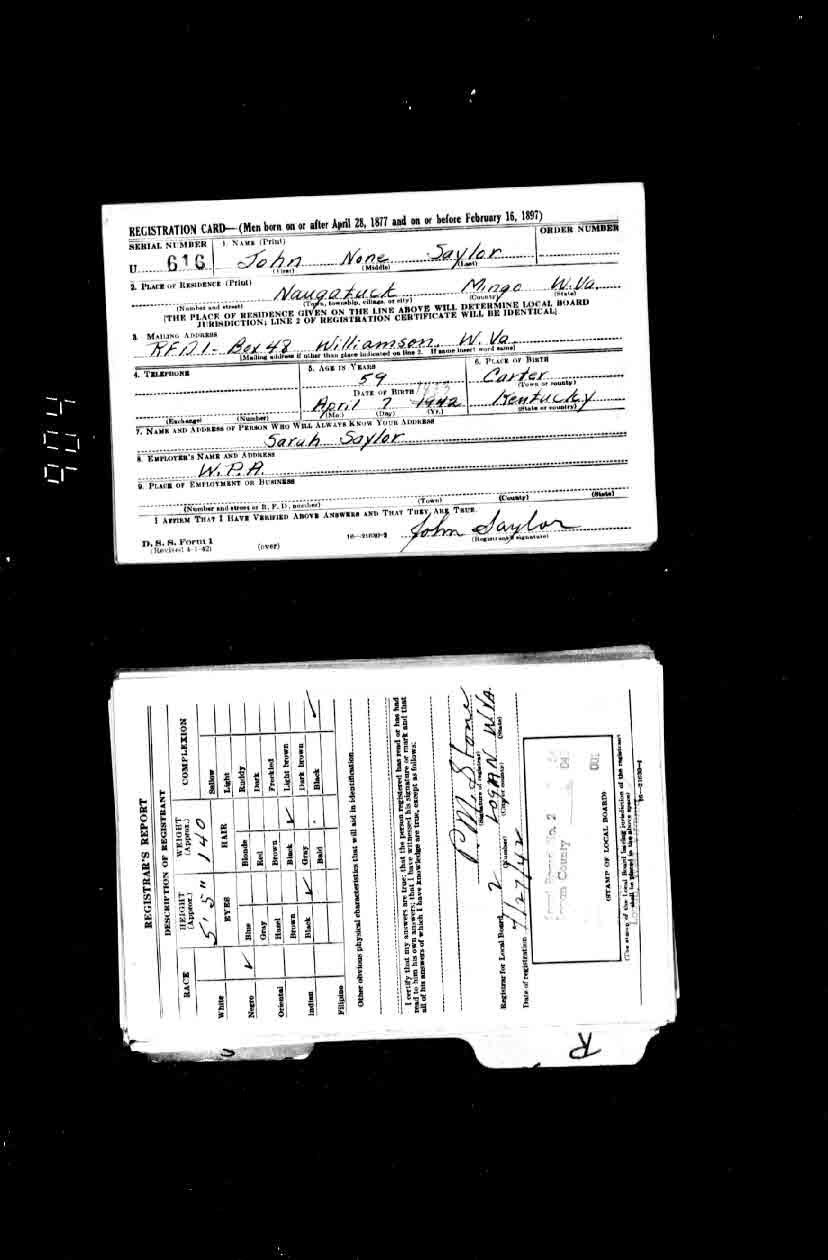 904
REGISTRATION CARD—(Men born on or after April 28, 1877 and on or before February 16, 1897)
SERIAL NUMBER 1. NAME (Print) ORDER NUMBER
U 616 John None Saylor
(First) (Middle) (Last)
2. PLACE OF RESIDENCE (Print)
Naugatuck Mingo W.Va.
(Number and street) (Town, township, village, or city) (County) (State)
[THE PLACE OF RESIDENCE GIVEN ON THE LINE ABOVE WILL DETERMINE LOCAL BOARD
JURISDICTION; LINE 2 OF REGISTRATION CERTIFICATE WILL BE IDENTICAL]
3. MAILING ADDRESS
RFD 1- Box 48 Williamson, W. Va.
[Mailing address if other than place indicated on line 2. If same insert word same]
4. TELEPHONE 5. AGE IN YEARS 6. PLACE OF BIRTH
59 Carter
(Town or county)
DATE OF BIRTH
April 7 1942 Kentucky
(Exchange) (Number) (Mo.) (Day) (Yr.) (State or country)
7. NAME AND ADDRESS OF PERSON WHO WILL ALWAYS KNOW YOUR ADDRESS
Sarah Saylor
8. EMPLOYER'S NAME AND ADDRESS
W.P.A.
9. PLACE OF EMPLOYMENT OR BUSINESS
(Number and street or R. F. D. number) (Town) (County) (State)
I AFFIRM THAT I HAVE VERIFIED ABOVE ANSWERS AND THAT THEY ARE TRUE.
John Saylor
D. S. S. Form 1 16—21630-2 (Registrant's signature)
(Revised 4-1-42) (over)
REGISTRAR'S REPORT
DESCRIPTION OF REGISTRANT
RACE HEIGHT (Approx.) WEIGHT (Approx.) COMPLEXION
5' 5" 140
White EYES HAIR Sallow
Light
Negro ✓ Blue Blonde Ruddy
Gray Red Dark
Oriental Hazel Brown Freckled
Brown Black ✓ Light brown
Indian Black ✓ Gray Dark brown
Bald Black ✓
Filipino
Other obvious physical characteristics that will aid in identification
I certify that my answers are true; that the person registered has read or has had
read to him his own answers; that I have witnessed his signature or mark and that
all of his answers of which I have knowledge are true, except as follows:
P. M. Stone
(Signature of registrar)
Registrar for Local Board 2 LOGAN W.VA.
(Number) (City or county) (State)
Date of registration 4/27/42
Local Board No. 2
Logan County
(STAMP OF LOCAL BOARD)
(The stamp of the Local Board having jurisdiction of the registrant
shall be placed in the above space)
16—21630-1
R